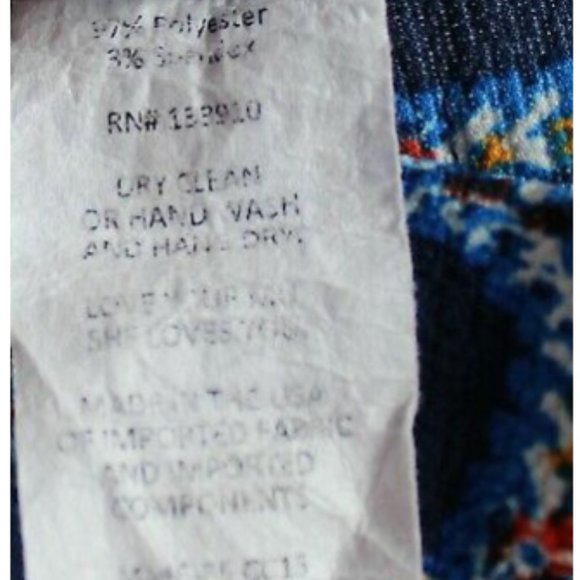 97% Polyester
3% Spandex
RN# 133910
DRY CLEAN
OR HAND WASH
AND HANG DRY.
LOVE YOUR
SHE LOVES YOU.
MADE IN THE USA
OF IMPORTED FABRIC
AND IMPORTED
COMPONENTS
CC15